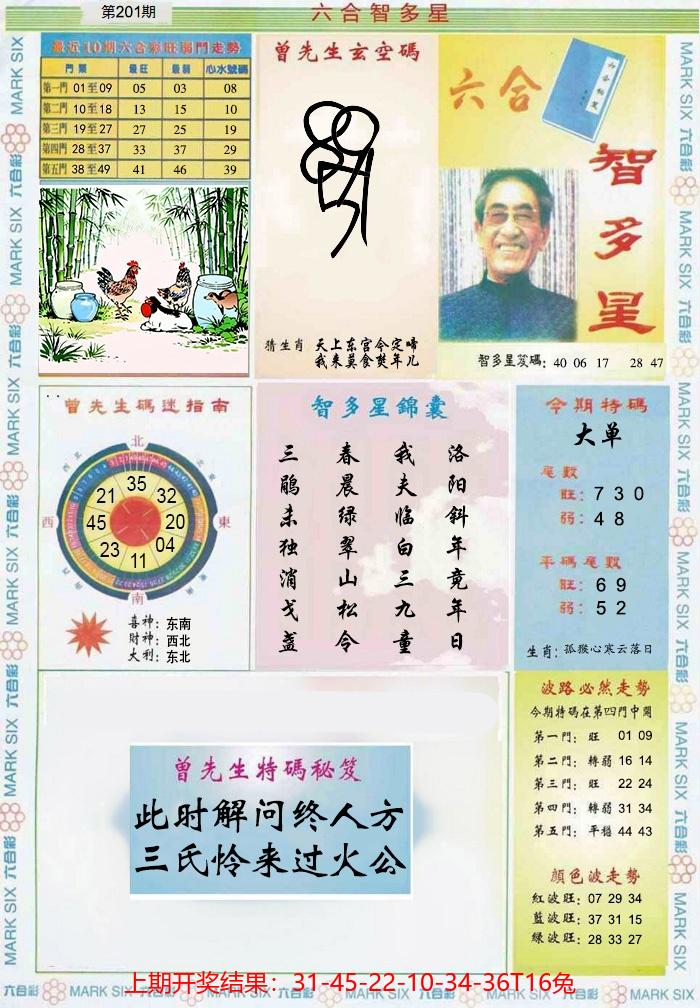 第201期
六合智多星
最近10期六合彩旺弱門走勢
門類 最旺 最弱 心水號碼
第一門 01至09 05 03 08
第二門 10至18 13 15 10
第三門 19至27 27 25 19
第四門 28至37 33 37 29
第五門 38至49 41 46 39
曾先生玄空碼
猜生肖 天上东宫令定啼
我来莫食焚年儿
六合
智多星
智多星笈碼: 40 06 17 28 47
曾先生碼迷指南
北
西
東
南
35
32
20
04
11
23
45
21
喜神: 东南
财神: 西北
大利: 东北
智多星錦囊
洛阳斜年竟年日
我夫临白三九童
春晨绿翠山松令
三鹃未独消戈盏
今期特碼
大单
尾數
旺: 7 3 0
弱: 4 8
平碼尾數
旺: 6 9
弱: 5 2
生肖: 孤猴心寒云落日
曾先生特碼秘笈
此时解问终人方
三氏怜来过火公
波路必然走勢
今期特碼在第四門中開
第一門: 旺 01 09
第二門: 轉弱 16 14
第三門: 旺 22 24
第四門: 轉弱 31 34
第五門: 平穩 44 43
顏色波走勢
紅波旺: 07 29 34
藍波旺: 37 31 15
綠波旺: 28 33 27
上期开奖结果：31-45-22-10-34-36T16兔
MARK SIX 六合彩